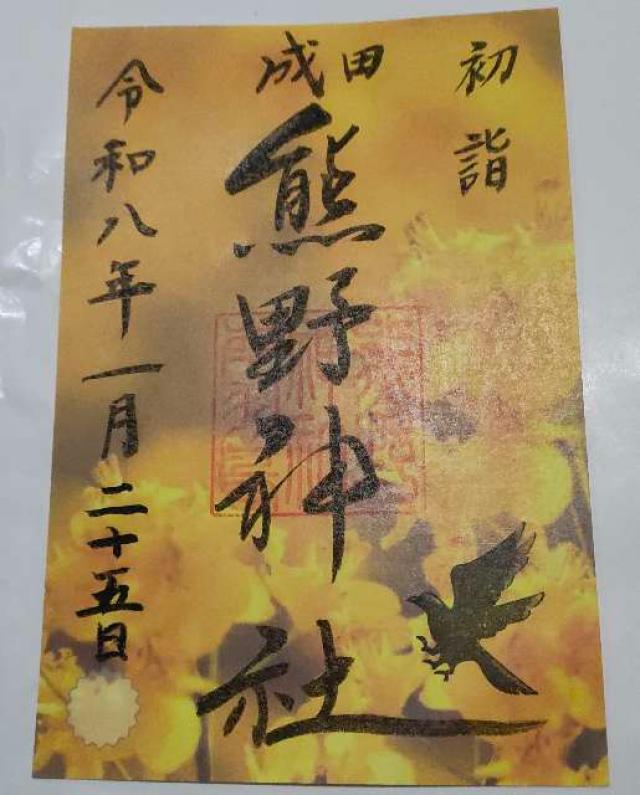 初詣
成田
熊野神社
令和八年一月二十五日